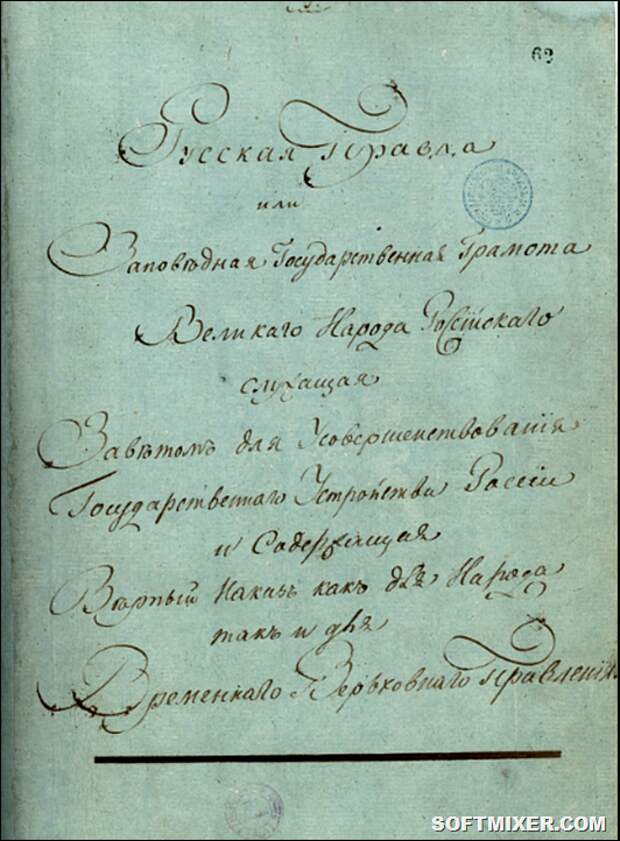 62
Русская Правда
или
Заповѣдная Государственная Грамота
Великаго Народа Россійскаго
служащая
Завѣтомъ для Усовершенствованія
Государственнаго Устройства Россіи
и Содержащая
Вѣрный Наказъ какъ для Народа
такъ и для
Временнаго Верьховнаго Правленія.
SOFTMIXER.COM